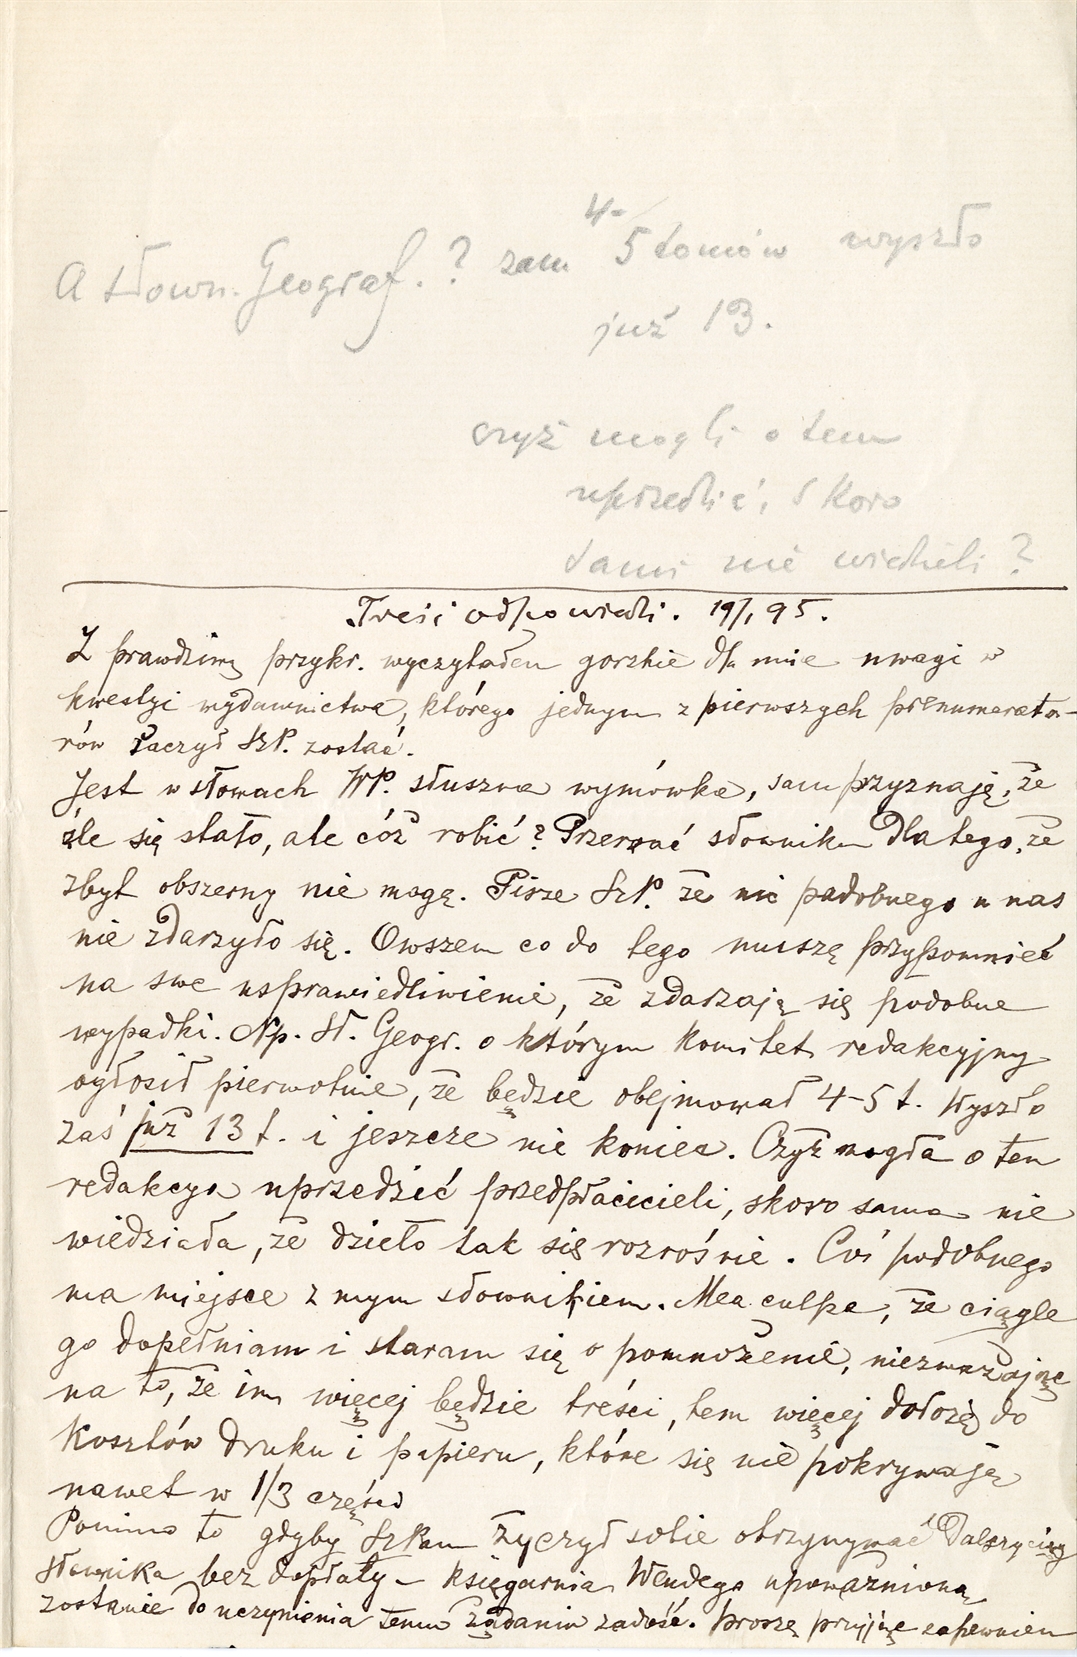 4-
A słown. Geograf. ? zam 5 tomów wyszło
już 13.
czyż mogli o tem
uprzedzić, skoro
sami nie wiedzieli ?
Treść odpowiedzi. 19/1 95.
Z prawdziwą przykr. wyczytałem gorzkie dla mnie uwagi w
kwestyi wydawnictwa, którego jednym z pierwszych prenumerato-
rów raczył SzP. zostać.
Jest w słowach WP. słuszna wymówka, sam przyznaję, że
źle się stało, ale cóż robić? Przerwać słownika dlatego, że
zbyt obszerny nie mogę. Pisze SzP. że nic podobnego u nas
nie zdarzyło się. Owszem co do tego muszę przypomnieć
na swe usprawiedliwienie, że zdarzają się podobne
wypadki. Np. Sł. Geogr. o którym komitet redakcyjny
ogłosił pierwotnie, że będzie obejmował 4-5 t. Wyszło
zaś już 13 t. i jeszcze nie koniec. Czyż mogła o tem
redakcya uprzedzić przedpłacicieli, skoro sama nie
wiedziała, że dzieło tak się rozrośnie. Coś podobnego
ma miejsce z mym słownikiem. Mea culpa, że ciągle
go dopełniam i staram się o pomnożenie, niezważając
na to, że im więcej będzie treści, tem więcej dołożę do
kosztów druku i papieru, które się nie pokrywają
nawet w 1/3 części
Pomimo to gdyby SzPan życzył sobie otrzymywać dalszy ciąg
słownika bez dopłaty – księgarnia Wendego upoważnioną
zostanie do uczynienia temu żądaniu zadość. Proszę przyjąć zapewnien